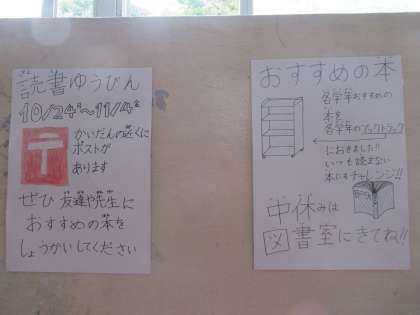 読書ゆうびん
10/24~11/4
かいだんの近くに
ポストが
あります
ぜひ 友達や先生に
おすすめの本を
しょうかいしてください
おすすめの本
各学年おすすめの
本を
各学年のブックトラック
におきました!!
いつも読まない
本にもチャレンジ!!
中休みは
図書室にきてね!!